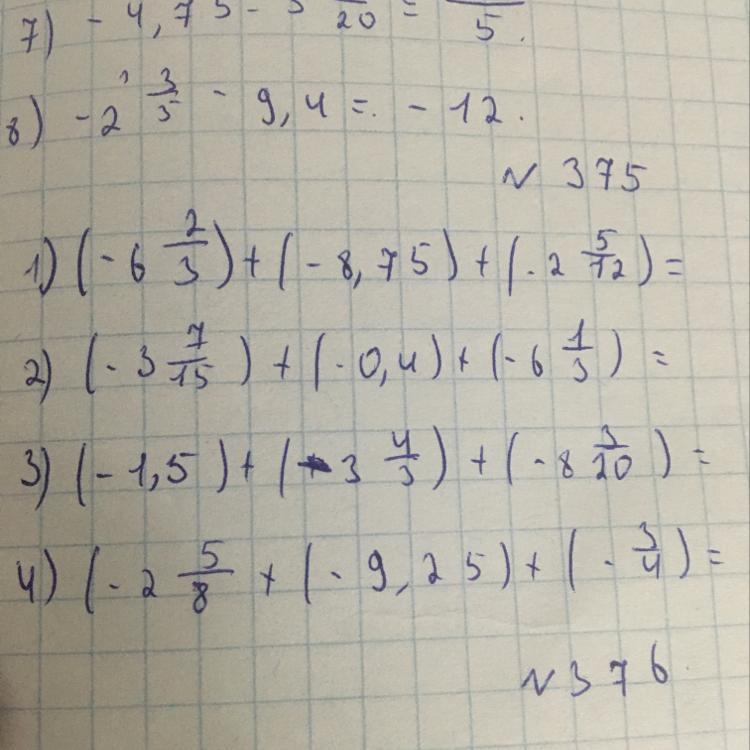 7) - 4,75 - 3 /20 = /5.
8) - 2 3/5 - 9,4 = - 12.
N 375
1) (- 6 2/3) + (- 8,75) + (- 2 5/12) =
2) (- 3 7/15) + (- 0,4) + (- 6 1/3) =
3) (- 1,5) + (- 3 4/3) + (- 8 3/20) =
4) (- 2 5/8 + (- 9,25) + (- 3/4) =
N 376.